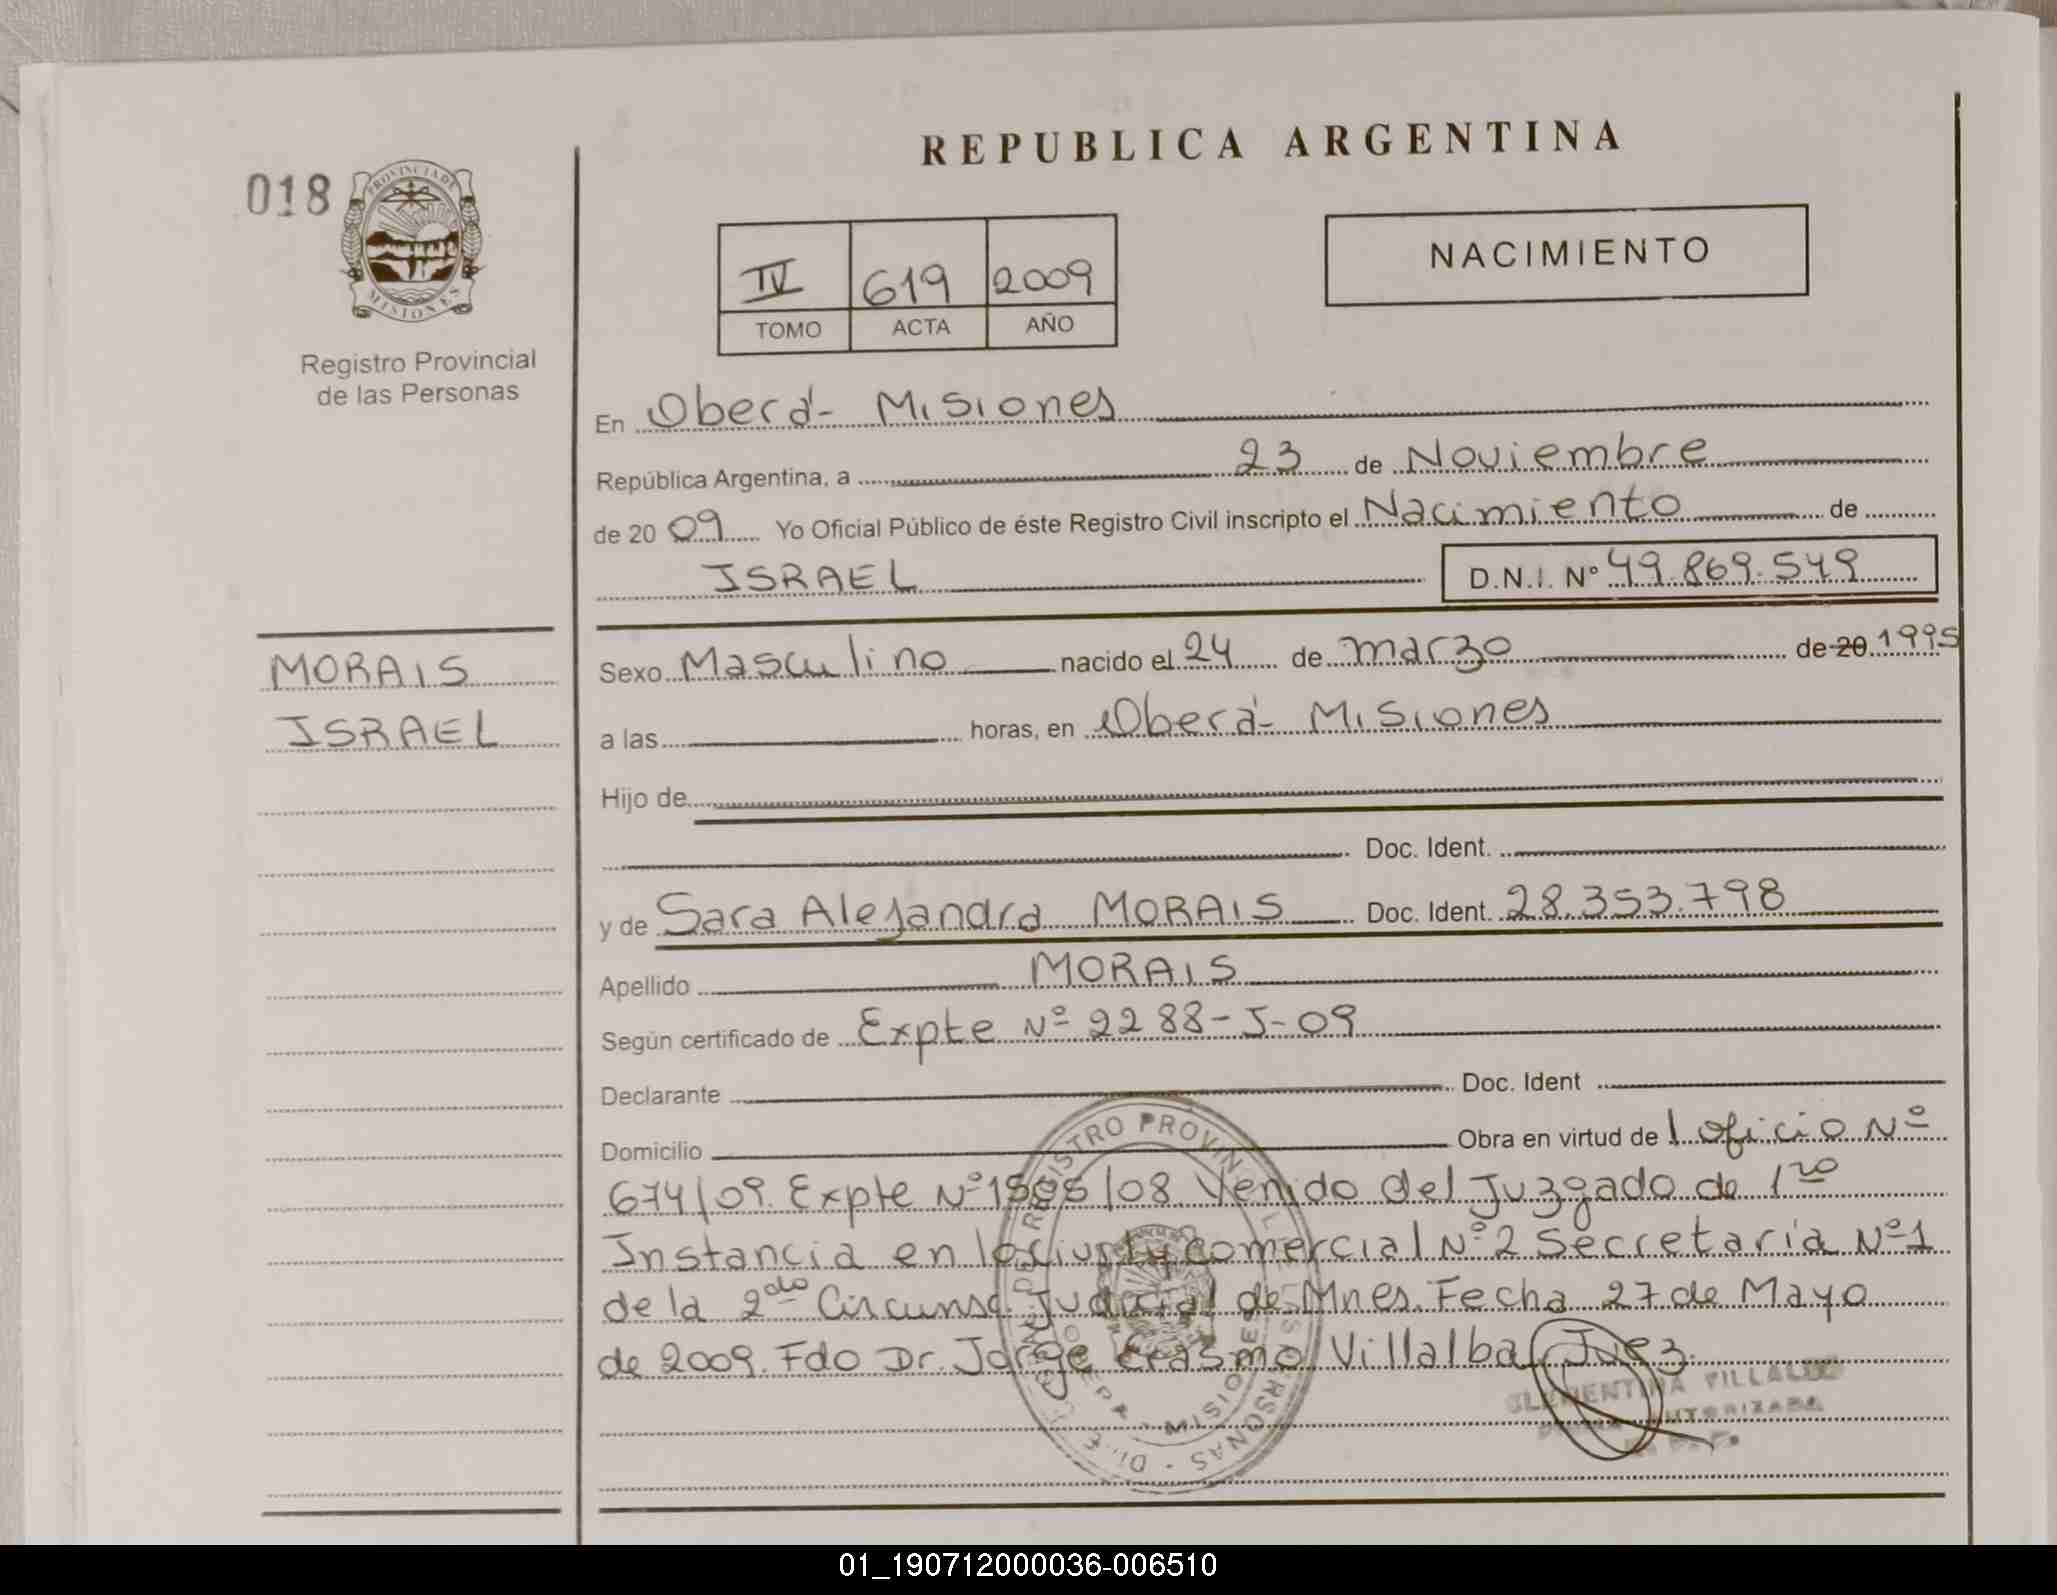 REPUBLICA ARGENTINA
018
PROVINCIA DE
MISIONES
Registro Provincial
de las Personas
NACIMIENTO
IV 619 2009
TOMO ACTA AÑO
En Oberá - Misiones
República Argentina, a 23 de Noviembre
de 20 09 Yo Oficial Público de éste Registro Civil inscripto el Nacimiento de
ISRAEL D.N.I. Nº 49.869.549
MORAIS
ISRAEL
Sexo Masculino nacido el 24 de marzo de 20 1995
a las horas, en Oberá - Misiones
Hijo de
Doc. Ident.
y de Sara Alejandra MORAIS Doc. Ident. 28.353.798
Apellido MORAIS
Según certificado de Expte Nº 2288-J-09
Declarante Doc. Ident
Domicilio Obra en virtud de 1 oficio Nº
674/09. Expte Nº /08. Venido del Juzgado de 1ro
Instancia en lo civil y comercial Nº 2 Secretaria Nº 1
de la 2do Circunsc. Judicial de Mnes. Fecha 27 de Mayo
de 2009. Fdo Dr. Jorge Erasmo Villalba Juez
CLEMENTINA VILLALBA
AUTORIZADA
01_190712000036-006510